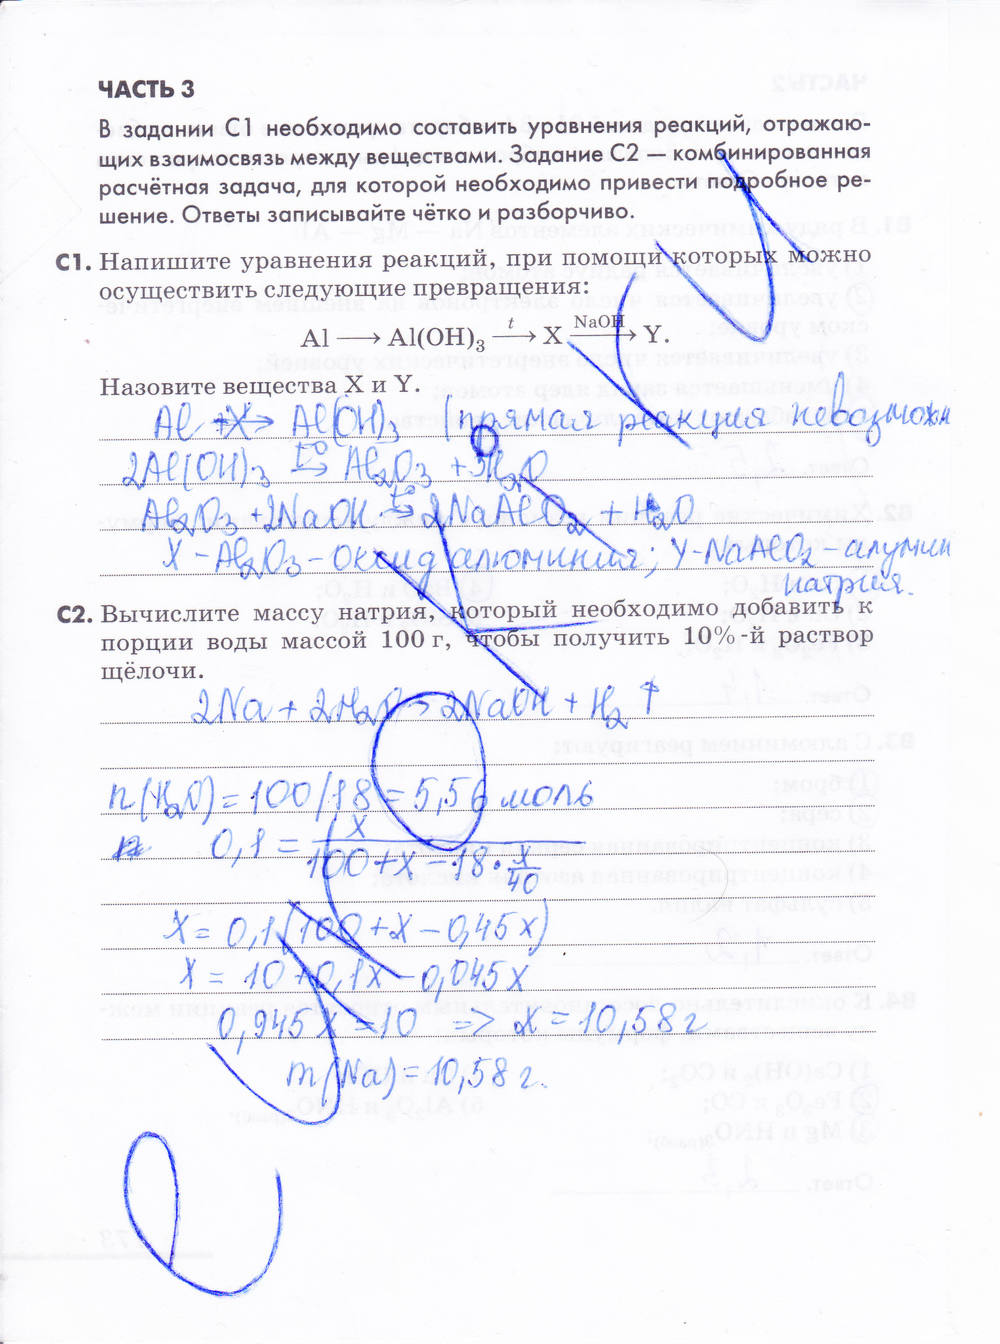 ЧАСТЬ 3
В задании С1 необходимо составить уравнения реакций, отражаю-
щих взаимосвязь между веществами. Задание С2 — комбинированная
расчётная задача, для которой необходимо привести подробное ре-
шение. Ответы записывайте чётко и разборчиво.
С1. Напишите уравнения реакций, при помощи которых можно
осуществить следующие превращения:
Al ⟶ Al(OH)₃ —t→ X —NaOH→ Y.
Назовите вещества X и Y.
Al +X→ Al(OH)₃ прямая реакция невозможн
2Al(OH)₃ t°→ Al₂O₃ + 3H₂O
Al₂O₃ + 2NaOH t°→ 2NaAlO₂ + H₂O
X - Al₂O₃ - оксид алюминия; Y - NaAlO₂ - алумин
натрия.
С2. Вычислите массу натрия, который необходимо добавить к
порции воды массой 100 г, чтобы получить 10%-й раствор
щёлочи.
2Na + 2H₂O → 2NaOH + H₂ ↑
n(H₂O) = 100/18 = 5,56 моль
0,1 = x / (100 + x - 18 · x/40)
x = 0,1(100 + x - 0,45x)
x = 10 + 0,1x - 0,045x
0,945x = 10 => x = 10,58 г
m(Na) = 10,58 г.